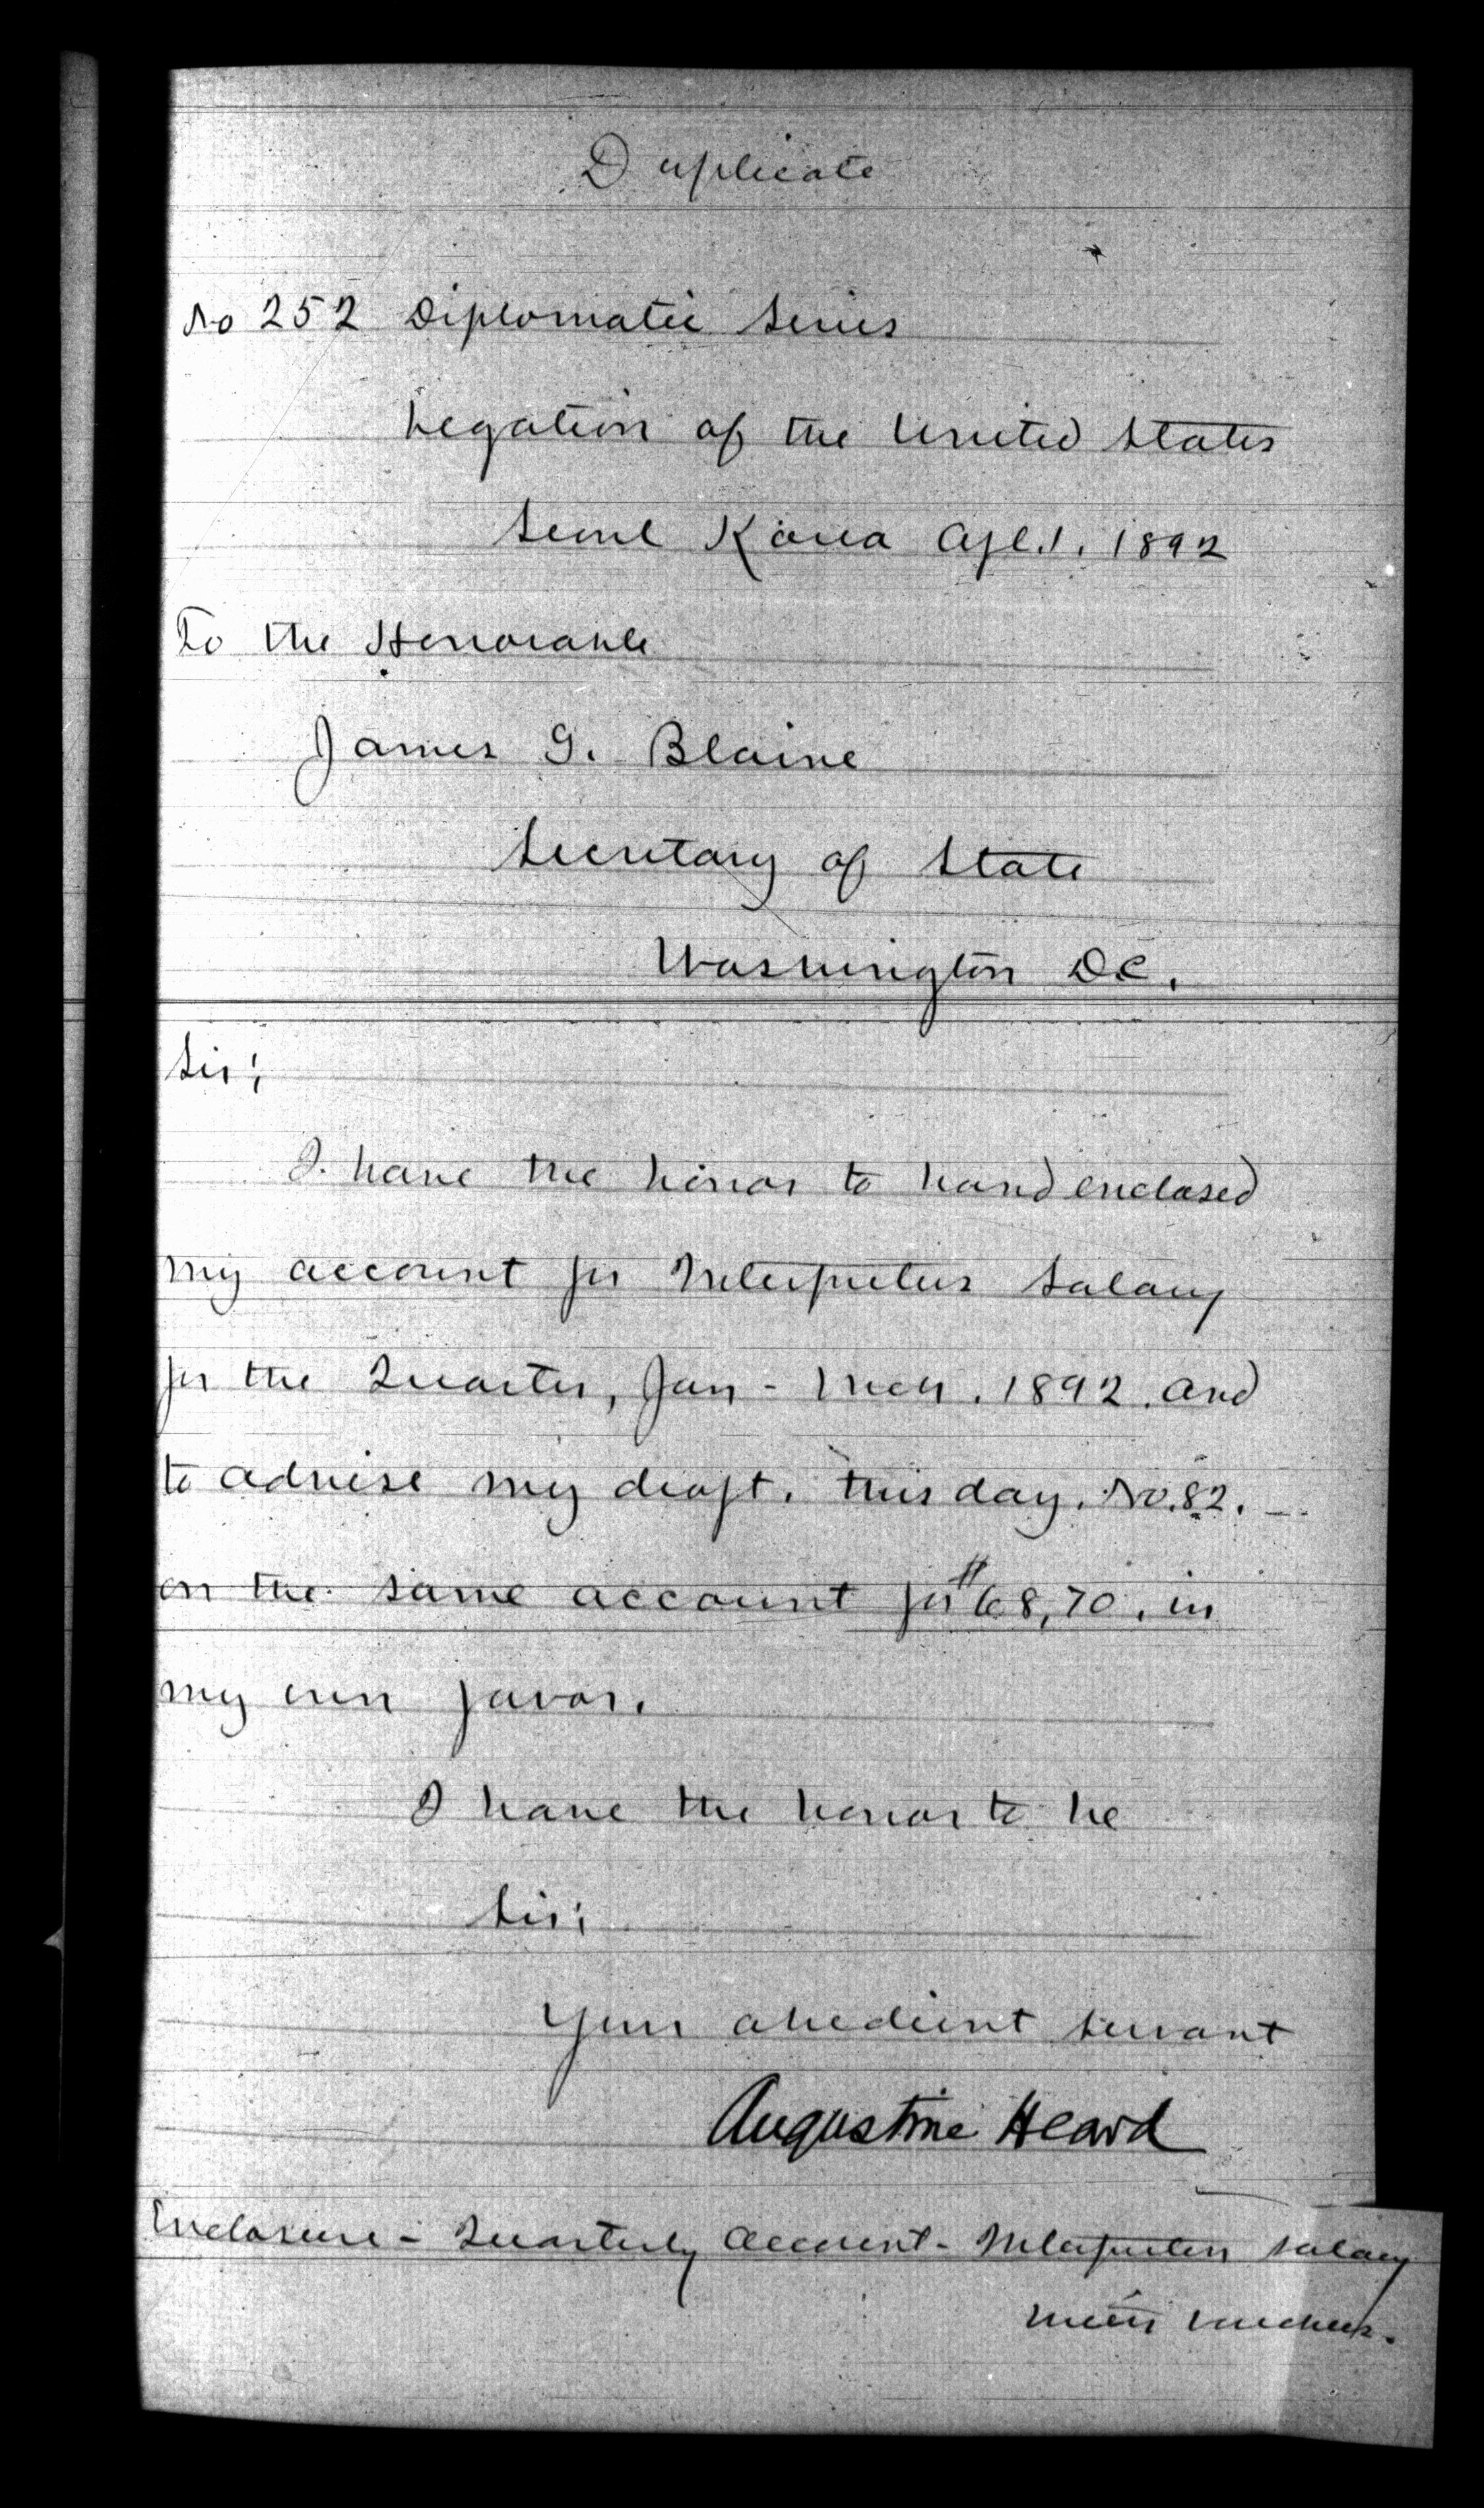 Duplicate
No 252 Diplomatic Series
Legation of the United States
Seoul Korea Apl. 1. 1892
To the Honorable
James G. Blaine
Secretary of State
Washington D.C.
Sir;
I have the honor to hand enclosed
my account for Interpreters Salary
for the Quarter, Jan - Mch. 1892. and
to advise my draft. this day. No. 82. -
on the same account for $68,70. in
my own favor.
I have the honor to be
Sir;
Your obedient servant
Augustine Heard
Enclosure - Quarterly Account - Interpreters salary
with vouchers.